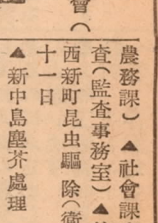 會(
農務課)▲社會課
査(監査事務室)▲
西新町昆虫驅除(衛
十一日
▲新中島塵芥處理